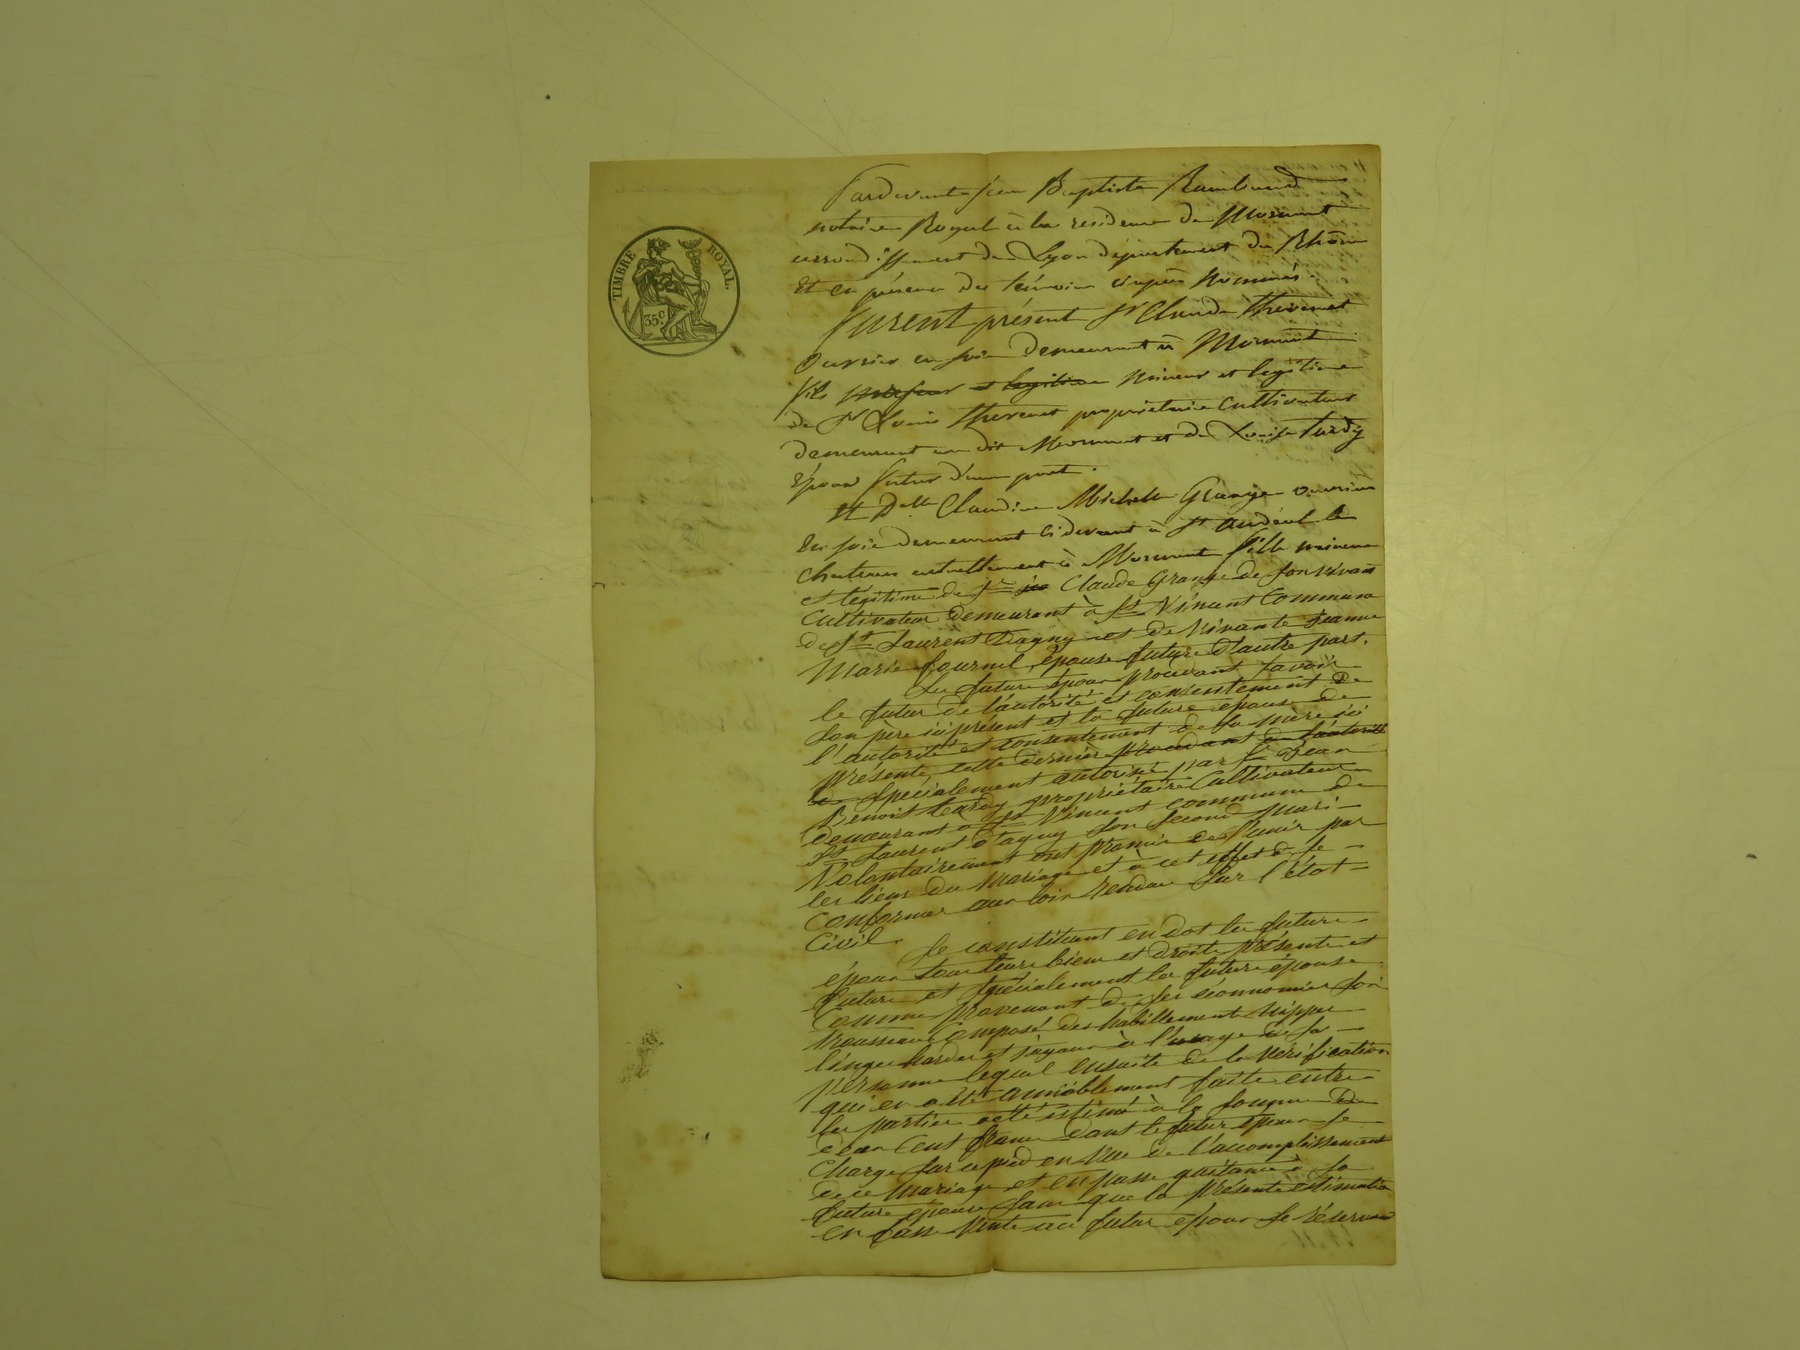 TIMBRE ROYAL.
35c.
Pardevant Jean Baptiste Rambaud
notaire Royal à la residence de Mornant
arrondissement de Lyon département du Rhône
Et en présence des témoins ciaprès Nommés.
Furent présent Sr Claude Thevenet
Ouvrier en soie demeurant à Mornant
fils et legitime Mineur et legitime
de Sr Louis Thevenet propriétaire Cultivateur
demeurant au dit Mornant et de Louise Tardy
époux futur d'une part.
Et Delle Claudine Michelle Grange ouvrière
En soie demeurant cidevant à St Andéol le
chateau actuellement à Mornant fille mineure
et légitime de Sr Claude Grange de son vivant
Cultivateur demeurant à St Vincent Commune
de St Laurent Dagny et de vivante Jeanne
Marie Fournel, épouse future d'autre part.
Les futurs époux procédant savoir
le futur de l'autorité et consentement de
son père ici présent et la future épouse de
l'autorité et consentement de sa mère ici
présente, cette dernière procédant de l'autorité
specialement autorisé par Sr Jean
Benoit Tardy propriétaire Cultivateur
demeurant à St Vincent commune de
St Laurent d'agny son second mari
Volontairement ont promis de s'unir par
les liens du Mariage et à cet effet de se
conformer aux lois rendue sur l'état
Civil.
Se constituent en dot les futurs
époux tous leurs biens et droits présents et
futurs et spécialement la future épouse
comme provenant de ses économies son
trousseau composé des habillement nippes
linges hardes et joyaux à l'usage de sa
personne lequel ensuite de la vérification
qui en a été amiablement faite entre
les parties a été estimé à la somme de
deux Cent francs dont le futur époux se
charge sur ce pied en vue de l'accomplissement
de ce Mariage et en passe quitance à sa
future épouse sans que la présente estimation
en fasse vente au futur époux se réservant